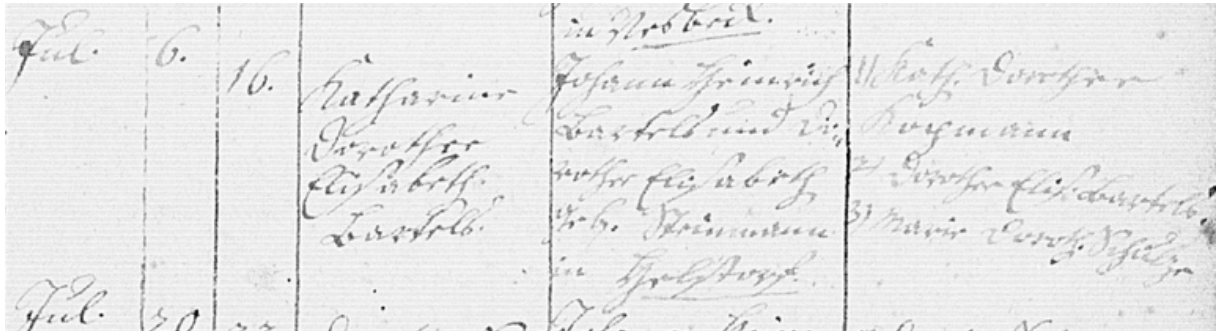 in Vesbeck.
Jul. 6. 16. Katharine
Dorothee
Elisabeth
Bartels.
Johann Heinrich
Bartels und Do-
rothee Elisabeth
geb. Steinmann
in Helstorf.
1) Kath. Dorothee
Kopmann
2) Dorothee Elis. Bartels.
3) Marie Doroth. Schulze
Jul. 20.